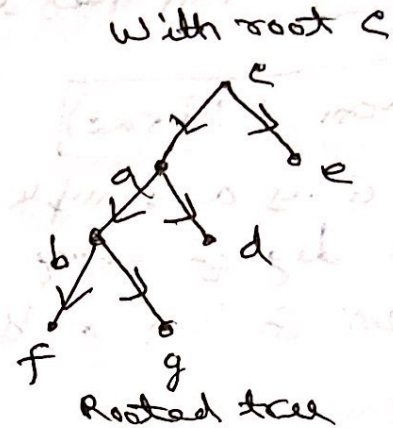 With root c
c
a
e
b
d
f
g
Rooted tree